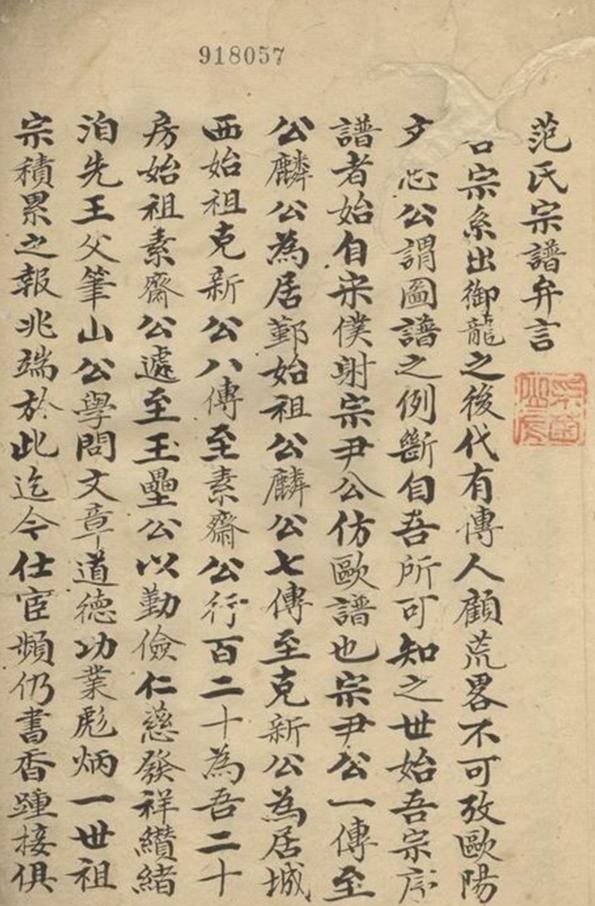 918057
范氏宗譜弁言
吾宗系出御龍之後代有傳人顧荒畧不可攷歐陽
文忠公謂圖譜之例斷自吾所可知之世始吾宗序
譜者始自宋僕射宗尹公仿歐譜也宗尹公一傳至
公麟公為居鄞始祖公麟公七傳至克新公為居城
西始祖克新公八傳至素齋公行百二十為吾二十
房始祖素齋公遞至玉壘公以勤儉仁慈發祥纘緒
洎先王父筆山公學問文章道德功業彪炳一世祖
宗積累之報兆端於此迄今仕宦頻仍書香踵接俱